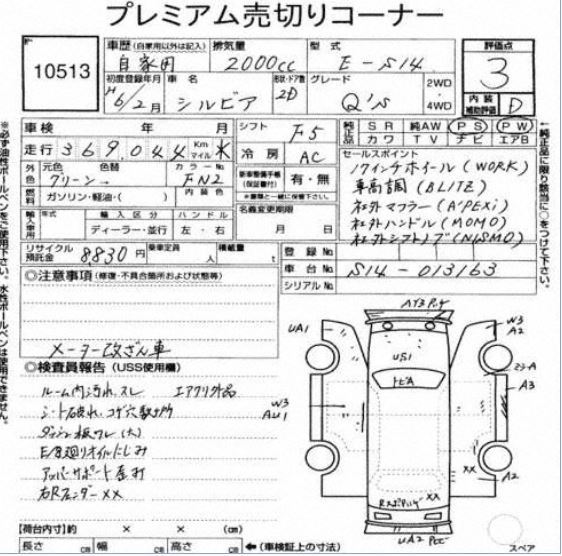 プレミアム売切りコーナー
10513
車歴 (自家用以外は記入) 自家用
排気量 2000cc
型式 E-S14
評価点 3
初度登録年月 H6/2月
車名 シルビア
形状・ドア数 2D
グレード Q's
2WD
4WD
内装補助評価 D
車検 年 月
シフト F5
純正品 SR 純AW PS PW
カワ TV ナビ エアB
走行 369,044 Km マイル
冷房 AC
セールスポイント
17インチホイール (WORK)
車高調 (BLITZ)
社外マフラー (A'PEXi)
社外ハンドル (MOMO)
社外シフトノブ (NISMO)
外色 元色 グリーン 色替 カラーNo FN2
燃料 ガソリン・軽油・( ) 内装色
新車整備手帳 (保証書付) 有・無
輸入車用 年式 輸入区分 ディーラー・並行 ハンドル 左・右
名義変更期限 月 日
リサイクル預託金 8830円 乗車定員 人 積載量 t
登録No
車台No S14-013163
シリアルNo
◎注意事項 (修復・不具合箇所および状態等)
メーター改ざん車
◎検査員報告 (USS使用欄)
ルーム内汚れ、スレ エアクリ外品
シート破れ、コゲ穴数ヶ所
ダッシュ板ワレ(大)
E/G廻りオイルにじみ
アッパーサポート歪み
右Rフェンダーxx
UA1
W3
A2
US1
トビA
ミラーA
A3
W3
AU1
xx
A2
xx
UA2
【荷台内寸】約 × × (cm)
長さ cm 幅 cm 高さ cm ←(車検証上の寸法)
スペア
※必ず油性ボールペンをご使用下さい。水性ボールペンは使用できません。
←純正品に限り該当に○をつけて下さい。